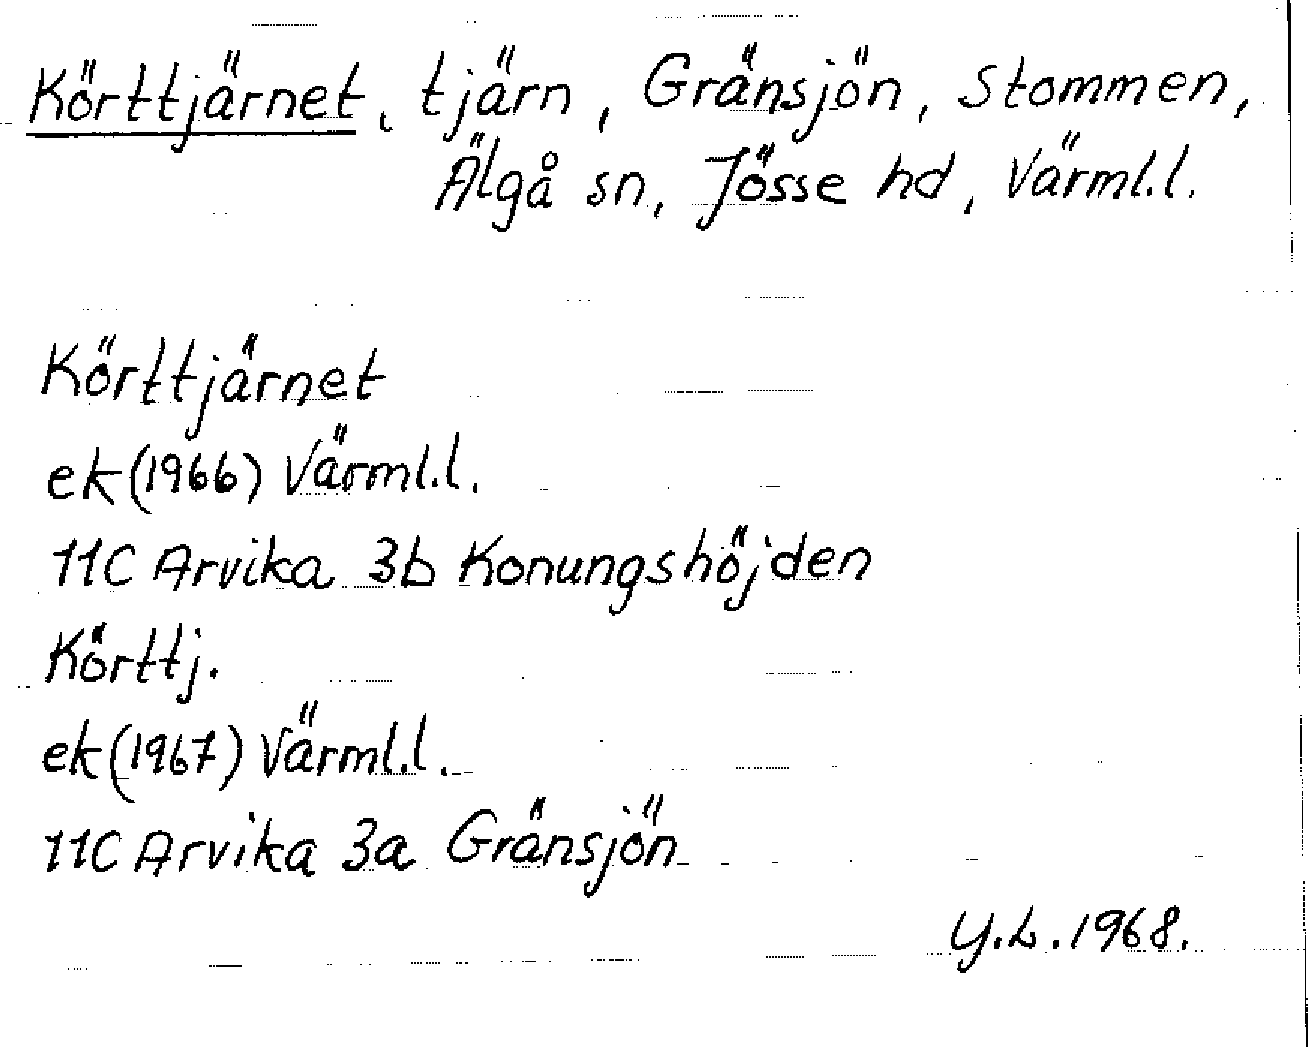 Körttjärnet, tjärn, Gränsjön, Stommen,
Älgå sn, Jösse hd, Värml.l.
Körttjärnet
ek(1966) Värml.l.
11C Arvika 3b Konungshöjden
Körttj.
ek(1967) Värml.l.
11C Arvika 3a Gränsjön
Y.L.1968.